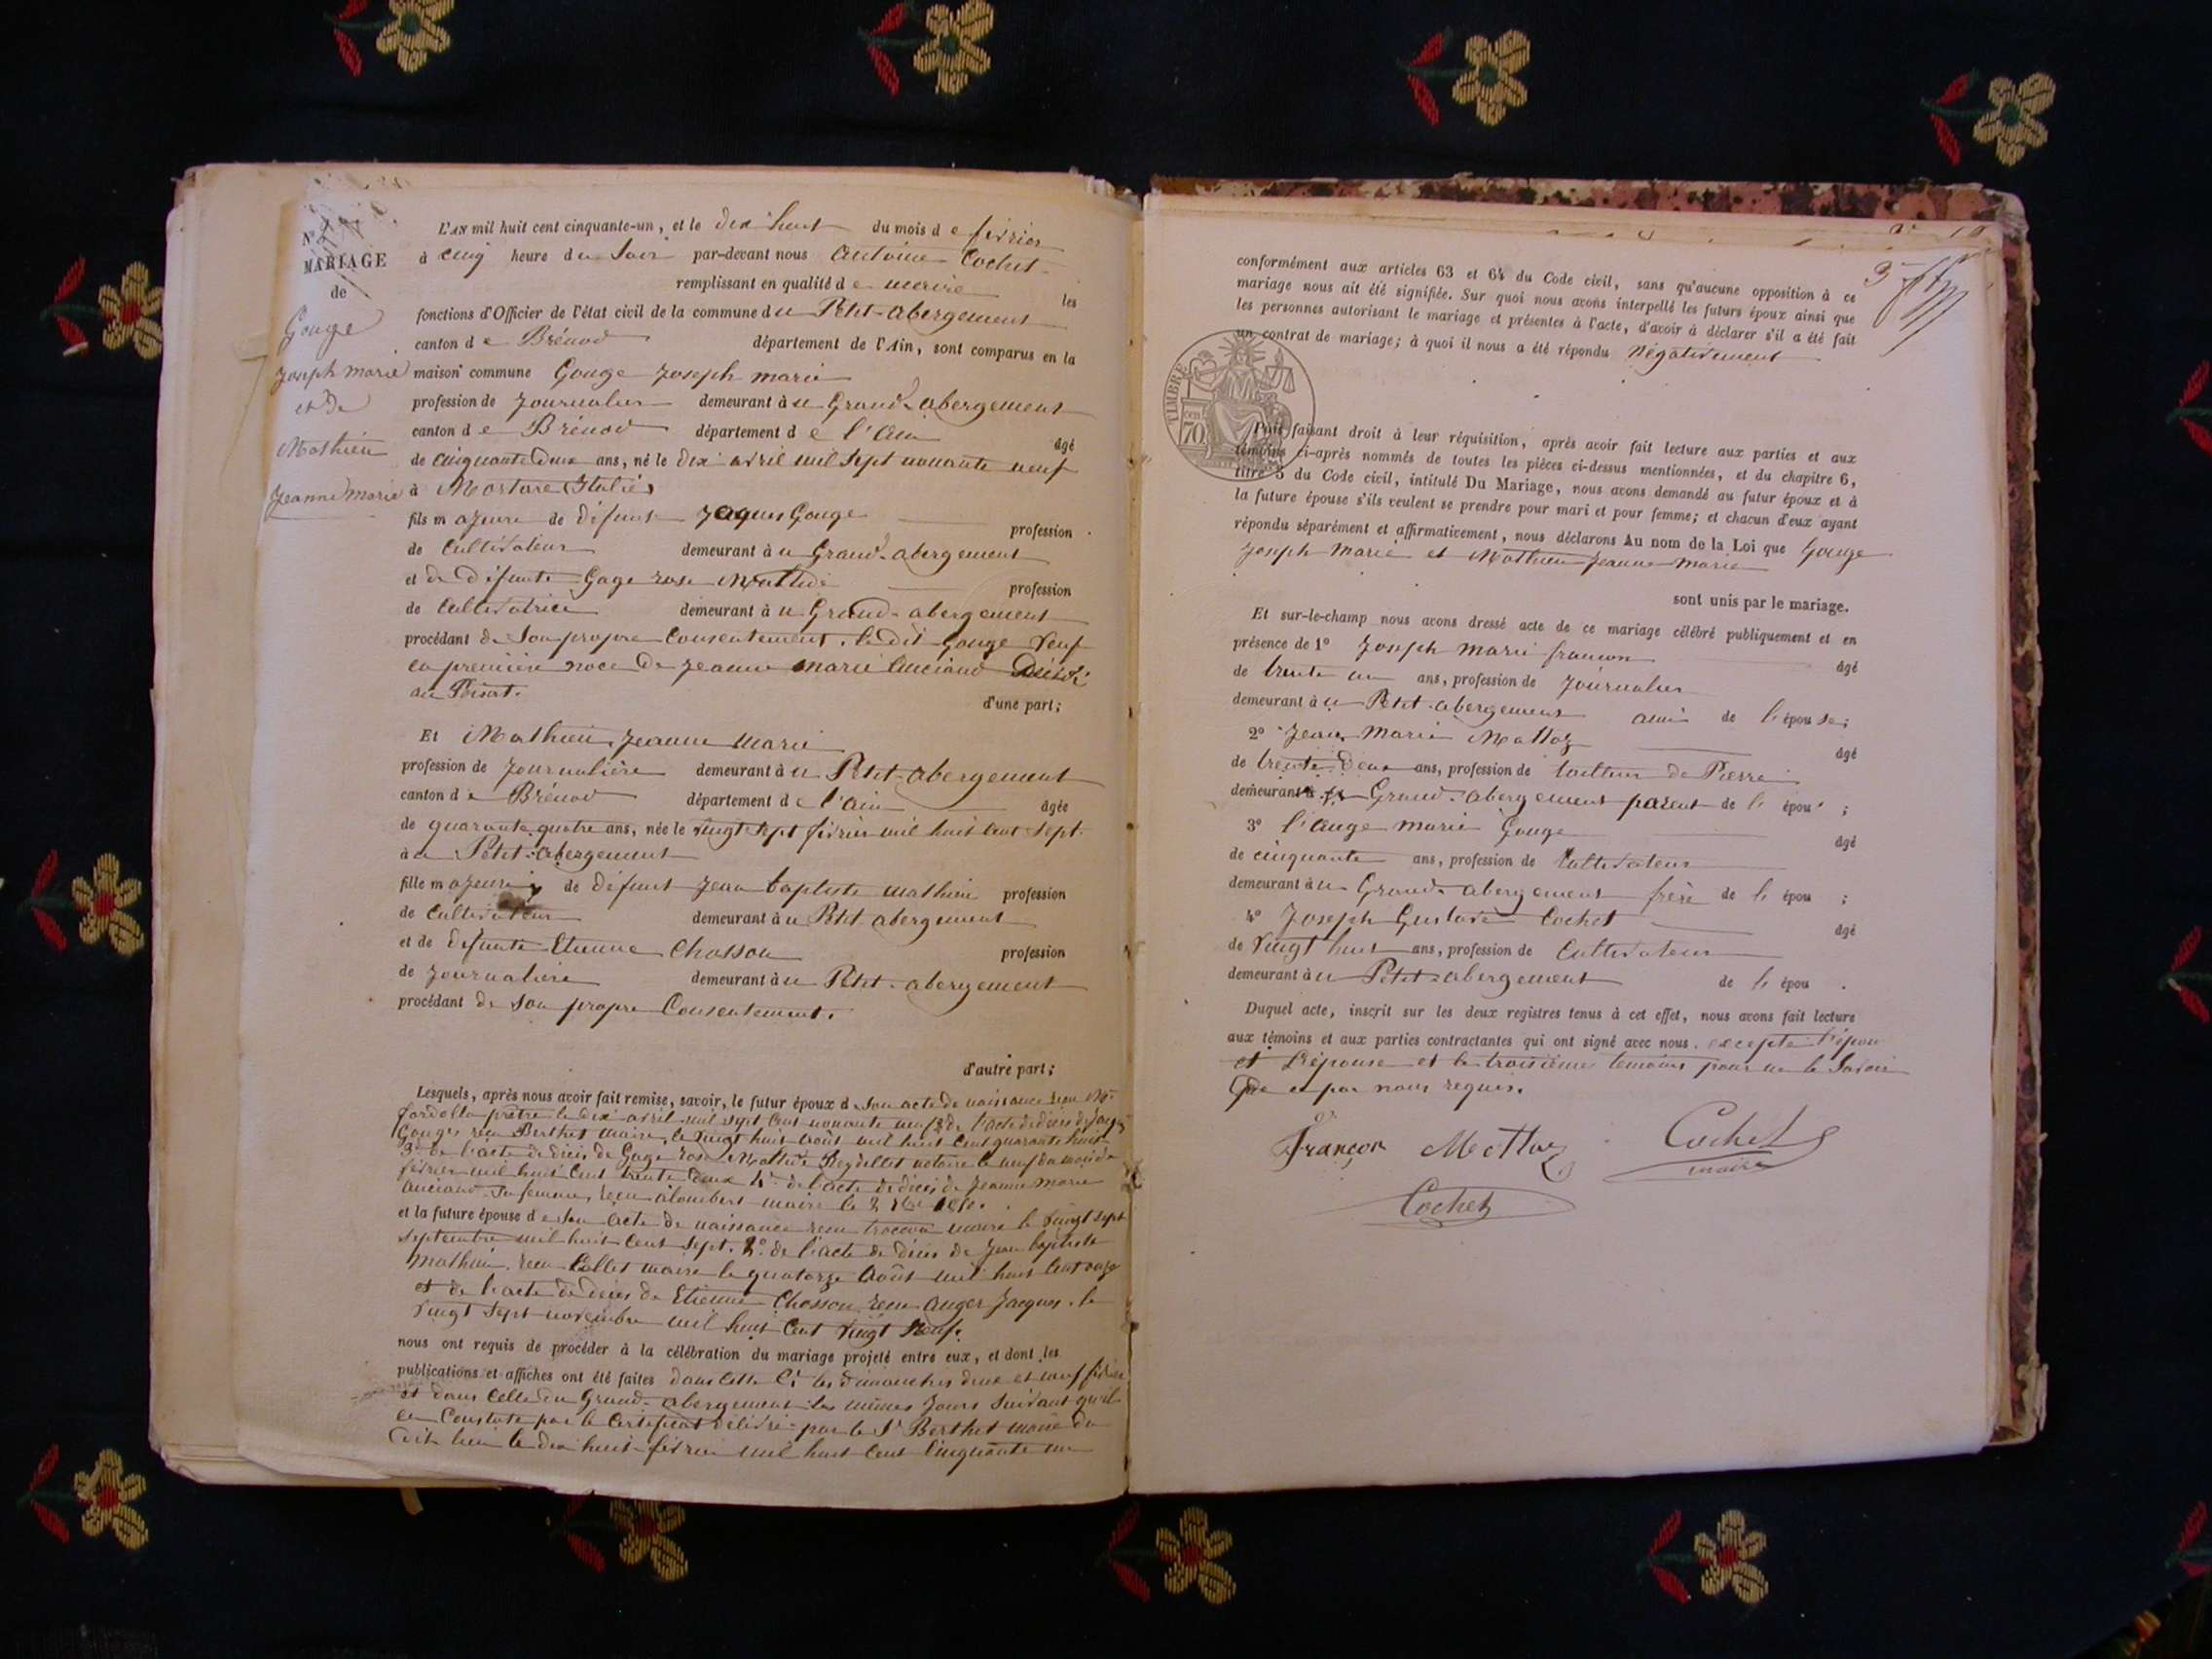 MARIAGE
de
Gouge
Joseph marie
et de
Mathieu
Jeanne Marie
L'AN mil huit cent cinquante-un, et le dix huit du mois de février
à cinq heure du Soir par-devant nous Antoine Cochet
remplissant en qualité de maire les
fonctions d'Officier de l'état civil de la commune du Petit-abergement
canton de Brénod département de l'Ain, sont comparus en la
maison commune Gouge Joseph marie
profession de Journalier demeurant au Grand-abergement
canton de Brénod département de l'Ain âgé
de cinquante deux ans, né le dix avril mil sept nonante neuf
à Mortare Italie
fils majeure de défunt Jaques Gouge profession
de Cultivateur demeurant au Grand-abergement
et de défunte Gage rose Mathide profession
de Cultivatrice demeurant au Grand-abergement
procédant de Son propre Consentement. le dit Gouge Veuf
en première noce de Jeanne Marie Anciand
au Poisat. d'une part;
Et Mathieu Jeanne Marie
profession de Journalière demeurant au Petit-abergement
canton de Brénod département de l'ain âgée
de quarante quatre ans, née le vingt sept février mil huit cent sept.
au Petit-abergement
fille majeure de défunt Jean baptiste mathieu profession
de Cultivateur demeurant au Petit abergement
et de défunte Etienne Chosson profession
de Journalière demeurant au Petit-abergement
procédant de Son propre Consentement.
d'autre part;
Lesquels, après nous avoir fait remise, savoir, le futur époux de Son acte de naissance reçu
prêtre le dix avril mil sept Cent nonante neuf 2º de l'acte de décès de Jaques
Gouges reçu Berthet maire, le vingt huit août mil huit Cent quarante huit
3º de l'acte de décès de Gage rose Mathide Reydellet notaire le neuf du mois de
février mil huit Cent trente deux 4º de l'acte de décès de Jeanne Marie
Anciand Sa femme, reçu maire le
et la future épouse de Son acte de naissance reçu maire le vingt sept
septembre mil huit Cent Sept. 2º de l'acte de décès de Jean baptiste
Mathieu. reçu Collet maire le quatorze Août mil huit Cent onze
et de l'acte de décès de Etienne Chosson reçu Auger Jacques. le
vingt Sept novembre mil huit Cent vingt Neuf.
nous ont requis de procéder à la célébration du mariage projeté entre eux, et dont les
publications et affiches ont été faites dans Cette Cᵉ les dimanches deux et neuf février
et dans Celle du Grand-abergement les mêmes Jours Suivant qu'il
en Constate par le Certificat délivré par le Sʳ Berthet maire du
dit lieu le dix huit février mil huit Cent Cinquante un
conformément aux articles 63 et 64 du Code civil, sans qu'aucune opposition à ce
mariage nous ait été signifiée. Sur quoi nous avons interpellé les futurs époux ainsi que
les personnes autorisant le mariage et présentes à l'acte, d'avoir à déclarer s'il a été fait
un contrat de mariage; à quoi il nous a été répondu Négativement
TIMBRE
70
Puis faisant droit à leur réquisition, après avoir fait lecture aux parties et aux
témoins ci-après nommés de toutes les pièces ci-dessus mentionnées, et du chapitre 6,
titre 5 du Code civil, intitulé Du Mariage, nous avons demandé au futur époux et à
la future épouse s'ils veulent se prendre pour mari et pour femme; et chacun d'eux ayant
répondu séparément et affirmativement, nous déclarons Au nom de la Loi que Gouge
Joseph Marie et Mathieu Jeanne Marie
sont unis par le mariage.
Et sur-le-champ nous avons dressé acte de ce mariage célébré publiquement et en
présence de 1º Joseph Marie françon âgé
de trente un ans, profession de Journalier
demeurant au Petit-abergement ami de l'épouse;
2º Jean Marie Mottaz âgé
de trente deux ans, profession de tailleur de Pierre
demeurant au Grand-abergement parent de l'épou ;
3º l'ange marie Gouge âgé
de cinquante ans, profession de Cultivateur
demeurant au Grand-abergement frère de l'épou ;
4º Joseph Gustave Cochet âgé
de Vingt huit ans, profession de Cultivateur
demeurant au Petit-abergement de l'épou .
Duquel acte, inscrit sur les deux registres tenus à cet effet, nous avons fait lecture
aux témoins et aux parties contractantes qui ont signé avec nous. excepté l'époux
et l'épouse et le troisième témoins pour ne le Savoir
de ce par nous requis.
Françon Mottaz Cochet
maire
Cochet